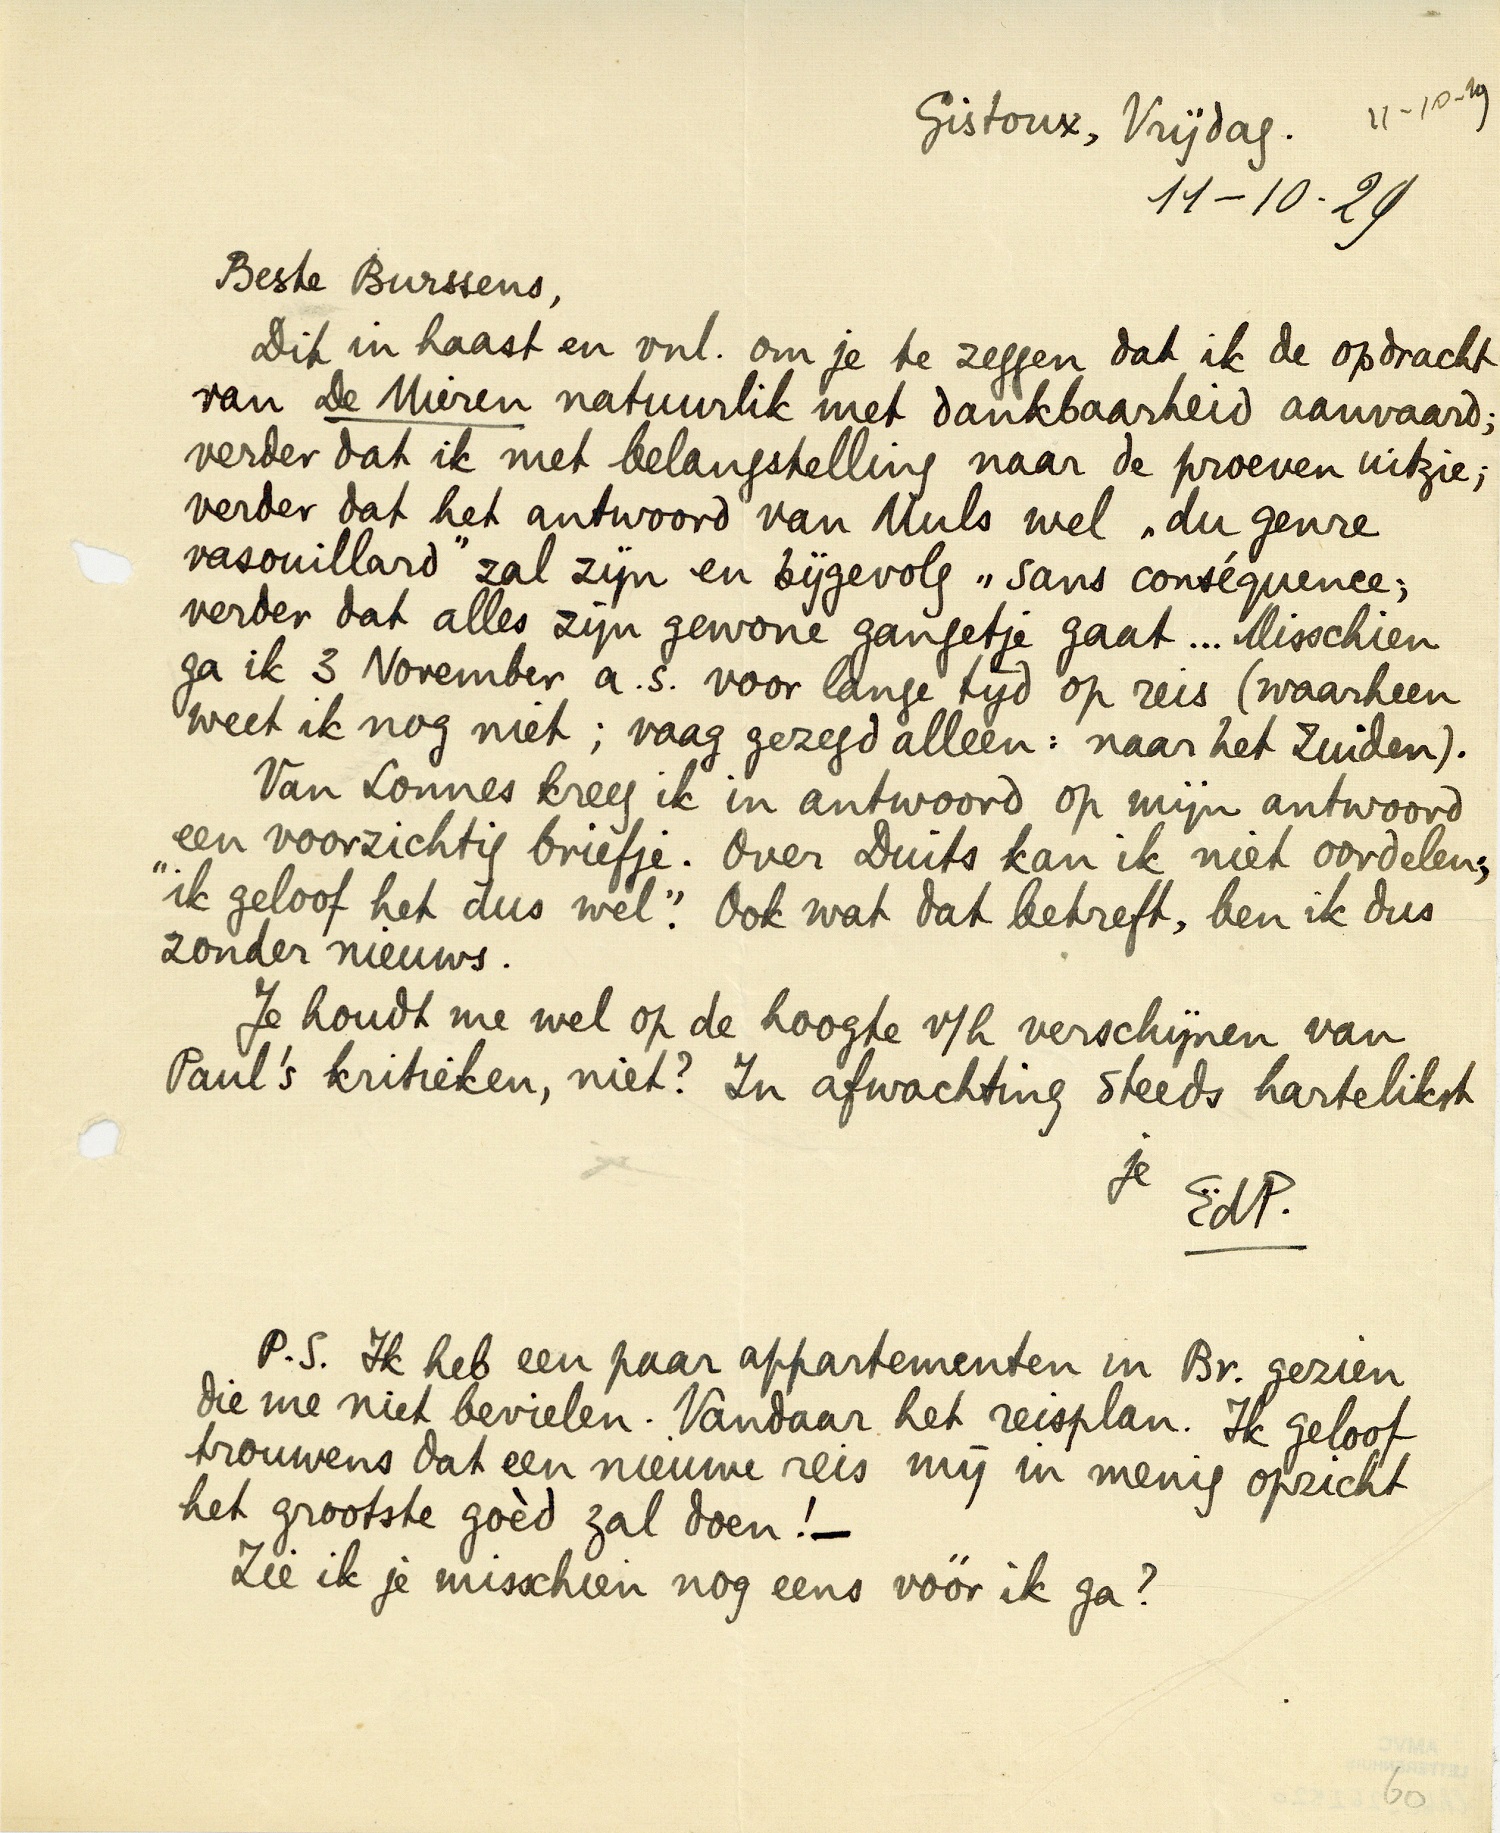 Gistoux, Vrijdag. 11-10-29
11-10-29
Beste Burssens,
Dit in haast en vnl. om je te zeggen dat ik de opdracht
van De Mieren natuurlik met dankbaarheid aanvaard;
verder dat ik met belangstelling naar de proeven uitzie;
verder dat het antwoord van Muls wel „du genre
vasouillard” zal zijn en bijgevolg „sans conséquence;
verder dat alles zijn gewone gangetje gaat... Misschien
ga ik 3 November a.s. voor lange tijd op reis (waarheen
weet ik nog niet; vaag gezegd alleen: naar het Zuiden).
Van Lonnes kreeg ik in antwoord op mijn antwoord
een voorzichtig briefje. Over Duits kan ik niet oordelen;
"ik geloof het dus wel". Ook wat dat betreft, ben ik dus
zonder nieuws.
Je houdt me wel op de hoogte v/h verschijnen van
Paul's kritieken, niet? In afwachting steeds hartelikst
je
EdP.
P.S. Ik heb een paar appartementen in Br. gezien
die me niet bevielen. Vandaar het reisplan. Ik geloof
trouwens dat een nieuwe reis mij in menig opzicht
het grootste goèd zal doen!—
Zie ik je misschien nog eens vóór ik ga?
60